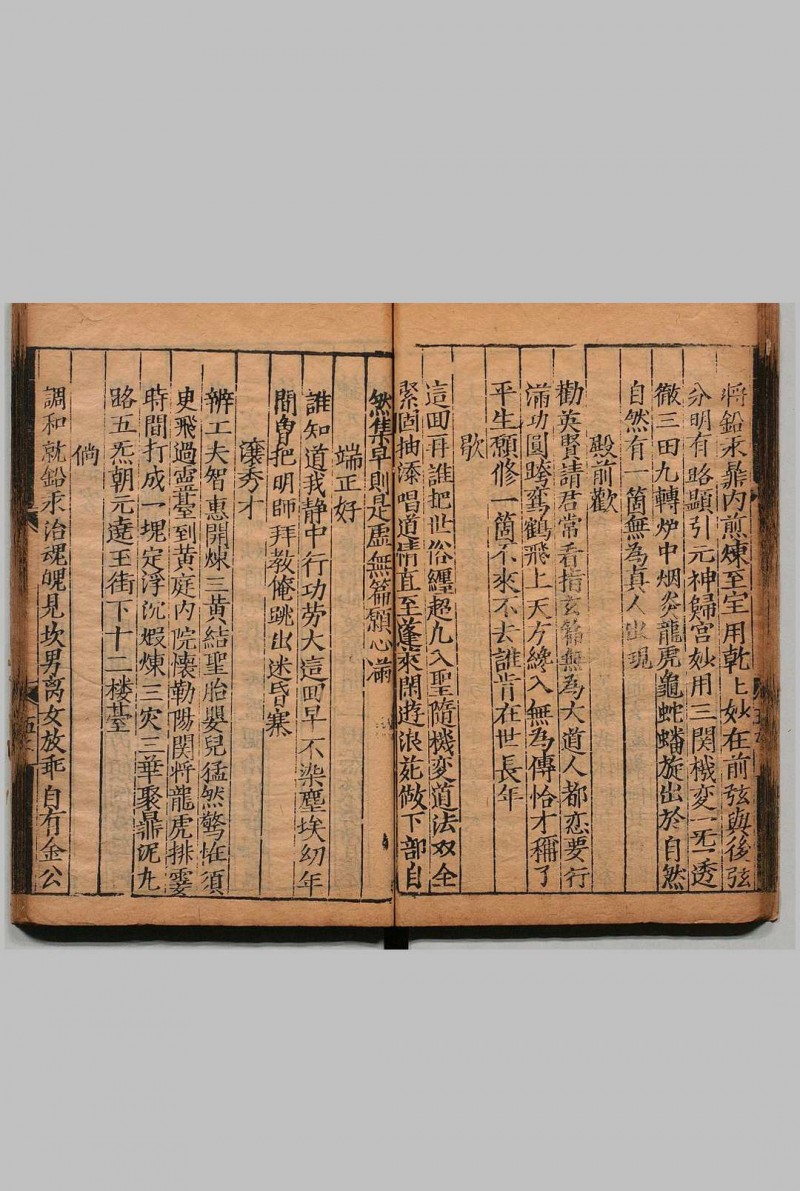 將鉛汞鼎内煎煉至宝用乾上妙在前弦與後弦
分明有路顯引元神歸宫妙用三関機变一炁透
徹三田九轉炉中烟㷔龍虎龜蛇蟠旋出於自然
自然有一箇無為真人出現
殿前歡
勸英賢請君常看指玄篇無為大道人都恋要行
滿功圓跨鸞鶴飛上天方纔入無為傳恰才稱了
平生願修一箇不來不去誰肯在世長年
歇
這回再誰把世俗纏超九入聖隨機变道法双全
緊固抽添唱道情直至蓬萊閑遊浪苑做下部自
然集早則是虛無篇願心滿
端正好
誰知道我静中行功劳大這回早不染塵埃幼年
間曽把明師拜教俺跳出迷昏寨
滚秀才
辨工夫智惠開煉三黄結聖胎嬰兒猛然驚恠須
㪅飛過霊臺到黄庭内院懐勒陽関将龍虎排霎
時間打成一塊定浮沉煆煉三灾三華聚鼎泥九
路五炁朝元遶玉街下十二楼䑓
倘
調和就鉛汞治魂魄見坎男离女放乖自有金公